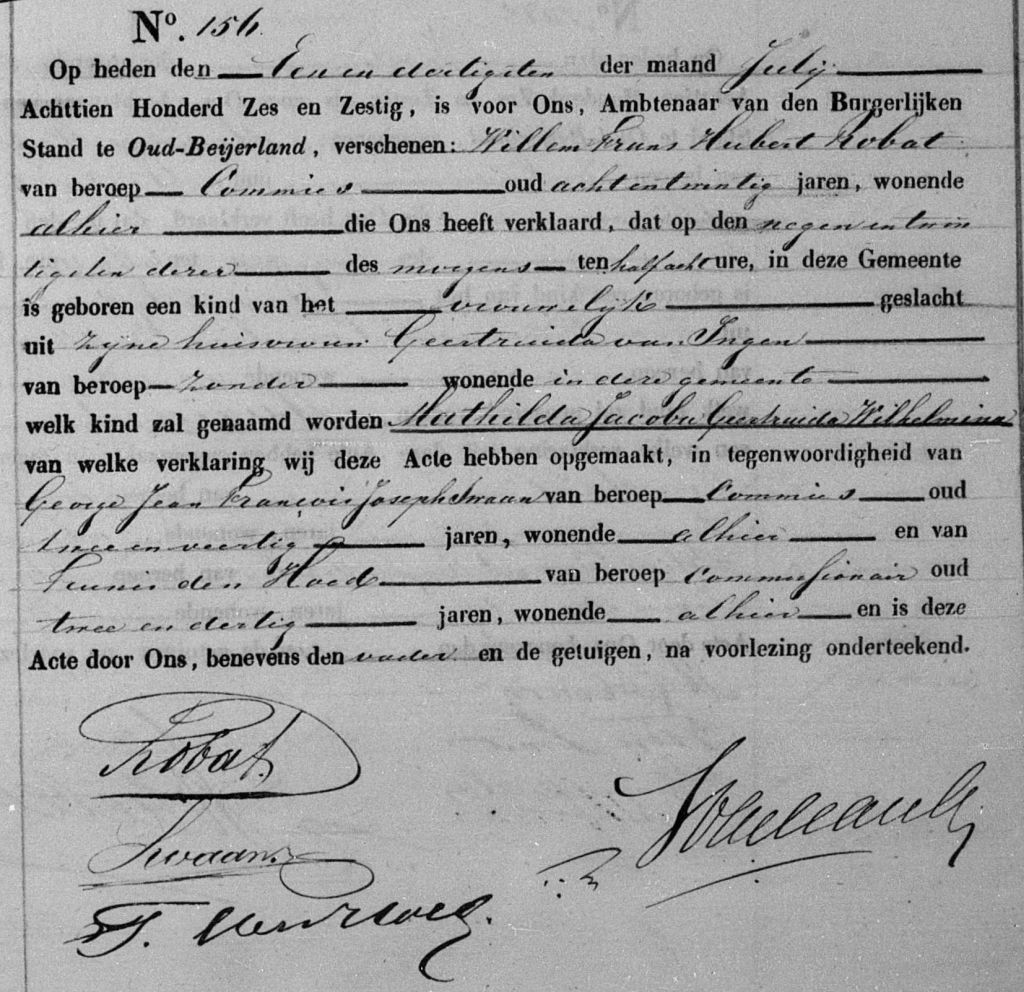 No. 156.
Op heden den Een en dertigsten der maand July
Achttien Honderd Zes en Zestig, is voor Ons, Ambtenaar van den Burgerlijken
Stand te Oud-Beijerland, verschenen: Willem Frans Hubert Robat
van beroep Commies oud acht en twintig jaren, wonende
alhier die Ons heeft verklaard, dat op den negen en twin
tigsten dezer des morgens ten half acht ure, in deze Gemeente
is geboren een kind van het vrouwelijk geslacht
uit zijne huisvrouw Geertruida van Ingen
van beroep zonder wonende in deze gemeente
welk kind zal genaamd worden Mathilda Jacoba Geertruida Wilhelmina
van welke verklaring wij deze Acte hebben opgemaakt, in tegenwoordigheid van
George Jean François Joseph Swaan van beroep Commies oud
twee en veertig jaren, wonende alhier en van
Teunis den Hoed van beroep commissionair oud
twee en dertig jaren, wonende alhier en is deze
Acte door Ons, benevens den vader en de getuigen, na voorlezing onderteekend.
Robat.
Swaan
T. den Hoed.